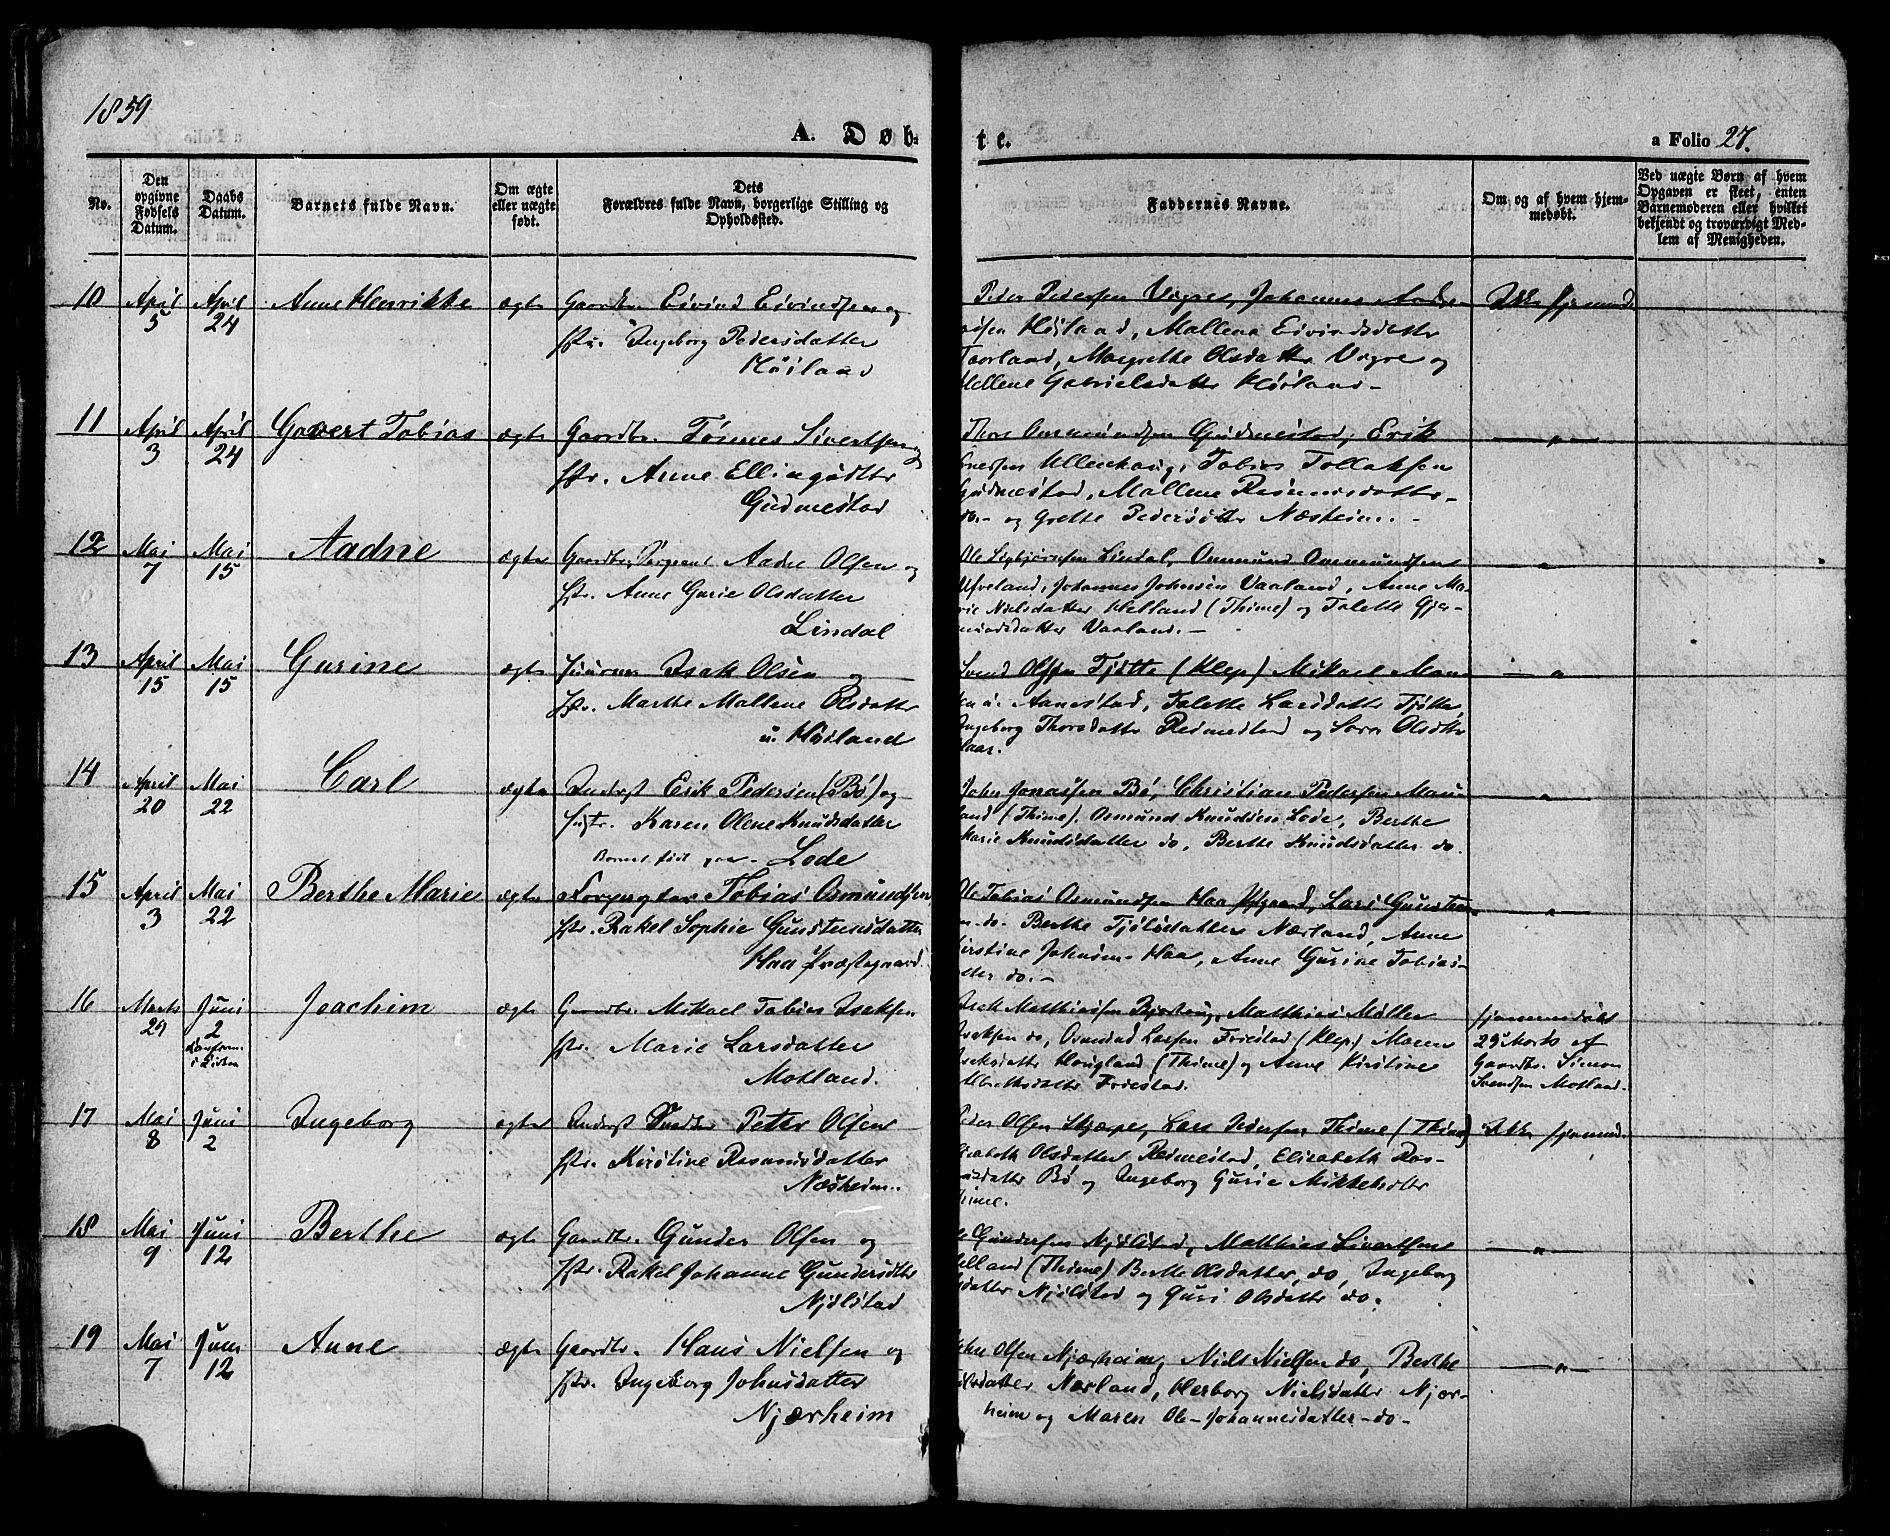 1859
A. Døb-
te.
a Folio 27.
No.
Den opgivne Fødsels Datum.
Daabs Datum.
Barnets fulde Navn.
Om ægte eller uægte født.
Dets Forældres fulde Navn, borgerlige Stilling og Opholdssted.
Faddernes Navne.
Om og af hvem hjemmedøbt.
Ved uægte Børn af hvem Opgaven er skeet, enten Barnemoderen eller hvilket bekjendt og troværdigt Medlem af Menigheden.
10 April 5 April 24 Anne Henrikke ægte Eivind Eivindsen og
Ingeborg Pedersdatter
Høiland
Peder Pedersen Vigre, Johannes
Høiland, Mallene Eivindsdatter
Margrethe Olsdatter Vigre og
Hellene Gabrielsdatter Høiland -
Ikke hjemmed.
11 April 3 April 24 Govert Tobias ægte Gaardbr. Tønnes Sivertsen og
Hstr. Anne Ellingsdtr
Gudmestad
Thore Ommundsen Gudmestad, Erik
Ullenhaug, Tobias Tollaksen
Gudmestad, Mallene Rasmusdatter
do. - og Grethe Pedersdtr Næsheim. -
— " —
12 Mai 7 Mai 15 Aadne ægte Gaardbr. Sergeant Aadne Olsen og
Hstr. Anne Gurie Olsdatter
Lindal
Ole Lindal, Ommund Ommundsen
Johannes Johnsen Vaaland, Anne Ma-
rie Nielsdatter Helland (Thime) og Talette
Vaaland. -
"
13 April 15 Mai 15 Gurine ægte Isak Olsen og
Hstr. Marthe Mallene Olsdatter
u. Høiland
Svend Olsen Tjøtte (Klep) Mikael
Aanestad, Talette Larsdatter Tjøtte,
Ingeborg Thorsdatter Reimestad og Olsdtr
Haar.
— "
14 April 20 Mai 22 Carl ægte Inderst Erik Pedersen (Bø) og
Hstr. Karen Olene Knudsdatter
Lode
John Jonassen Bø, Christian Pedersen Mau-
land (Thime). Osmund Knudsen Lode, Berthe
Marie Knudsdatter do, Berthe Knudsdatter do.
"
15 April 3 Mai 22 Berthe Marie ægte Forpagter Tobias Osmundsen
Hstr. Rakel Sophie Gundstensdatter
Haa Præstegaard.
Ole Tobias Osmundsen Haa Lars
do. Berthe Tjølsdatter Nærland, Anne
Kirstine Johnsen Haa, Anne Gurine Tobias-
datter do. -
"
16 Marts 29 Juni 2 Joachim ægte Gaardbr. Mikael Tobias Isaksen
Hstr. Marie Larsdatter
Motland.
Isak Mathiassen Matthias Møller
Isaksen do, Osmund Larsen Friestad (Klep) Maren
Isaksdatter Hougland (Thime) og Anne Kirstine
Friestad.
hjemmedøbt
29 Marts af
Gaardbr. Simon
Svendsen Motland.
17 Mai 8 Juni 2 Ingeborg ægte Inderst Petter Olsen
Hstr. Kirstine Rasmusdatter
Næsheim.
Peder Olsen Lars Pedersen Thime (Thime)
Olsdatter Reimestad, Elisabeth Ras-
musdatter Bø og Ingeborg Gurie
Thime.
Ikke hjemmed.
18 Mai 9 Juni 12 Berthe ægte Gaardbr. Gunder Olsen og
Hstr. Rakel Johanne Gundersdtr
Njølstad
Gundersen Njølstad, Matthias Sivertsen
Helland (Thime) Berthe Olsdatter do, Ingeborg
Njølstad og Guri Olsdatter do.
— " —
19 Mai 7 Juni 12 Anne ægte Gaardbr. Hans Nielsen og
Hstr. Ingeborg Johnsdatter
Njærheim
John Olsen Njærheim, Niels Nielsen do, Berthe
Nærland, Herborg Nielsdatter Njær-
heim og Maren Ole-Johannesdatter - do -
— " —